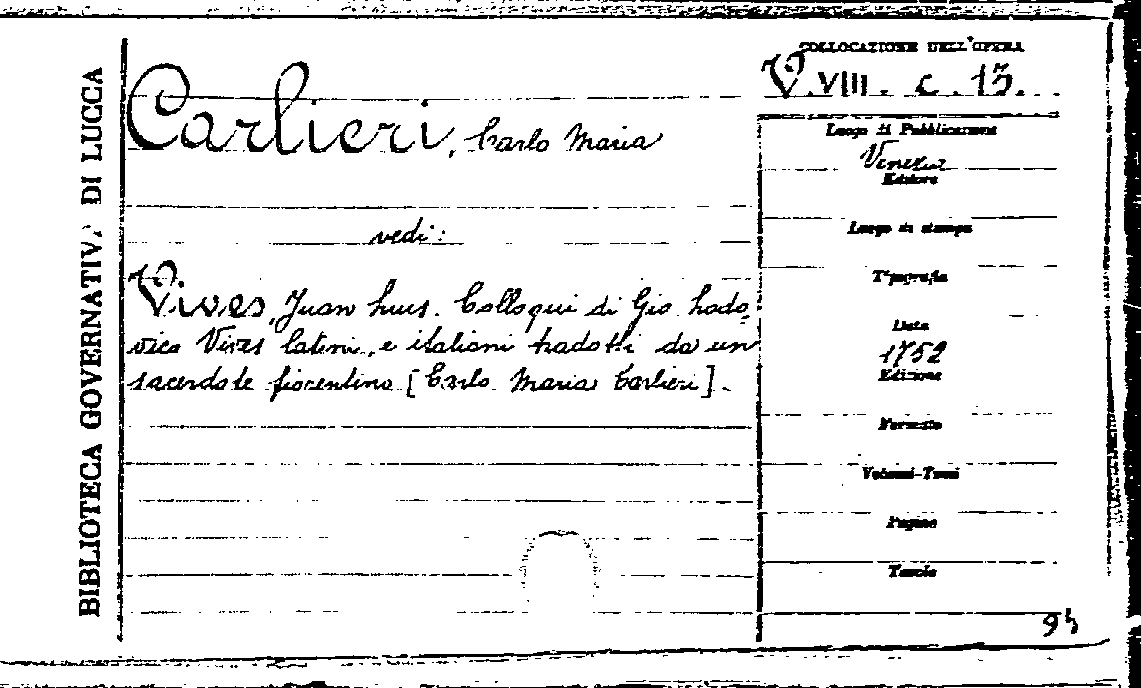 BIBLIOTECA GOVERNATIVA DI LUCCA
Carlieri, Carlo Maria
vedi:
Vives, Juan Luis. Colloqui di Gio. Lodo-
vico Vives latini, e italiani tradotti da un
sacerdote fiorentino [Carlo Maria Carlieri].
COLLOCAZIONE DELL'OPERA
V. VIII. c. 13.
Luogo di Pubblicazione
Venezia
Editore
Luogo di stampa
Tipografia
Data
1752
Edizione
Formato
Volumi-Tomi
Pagine
Tavole